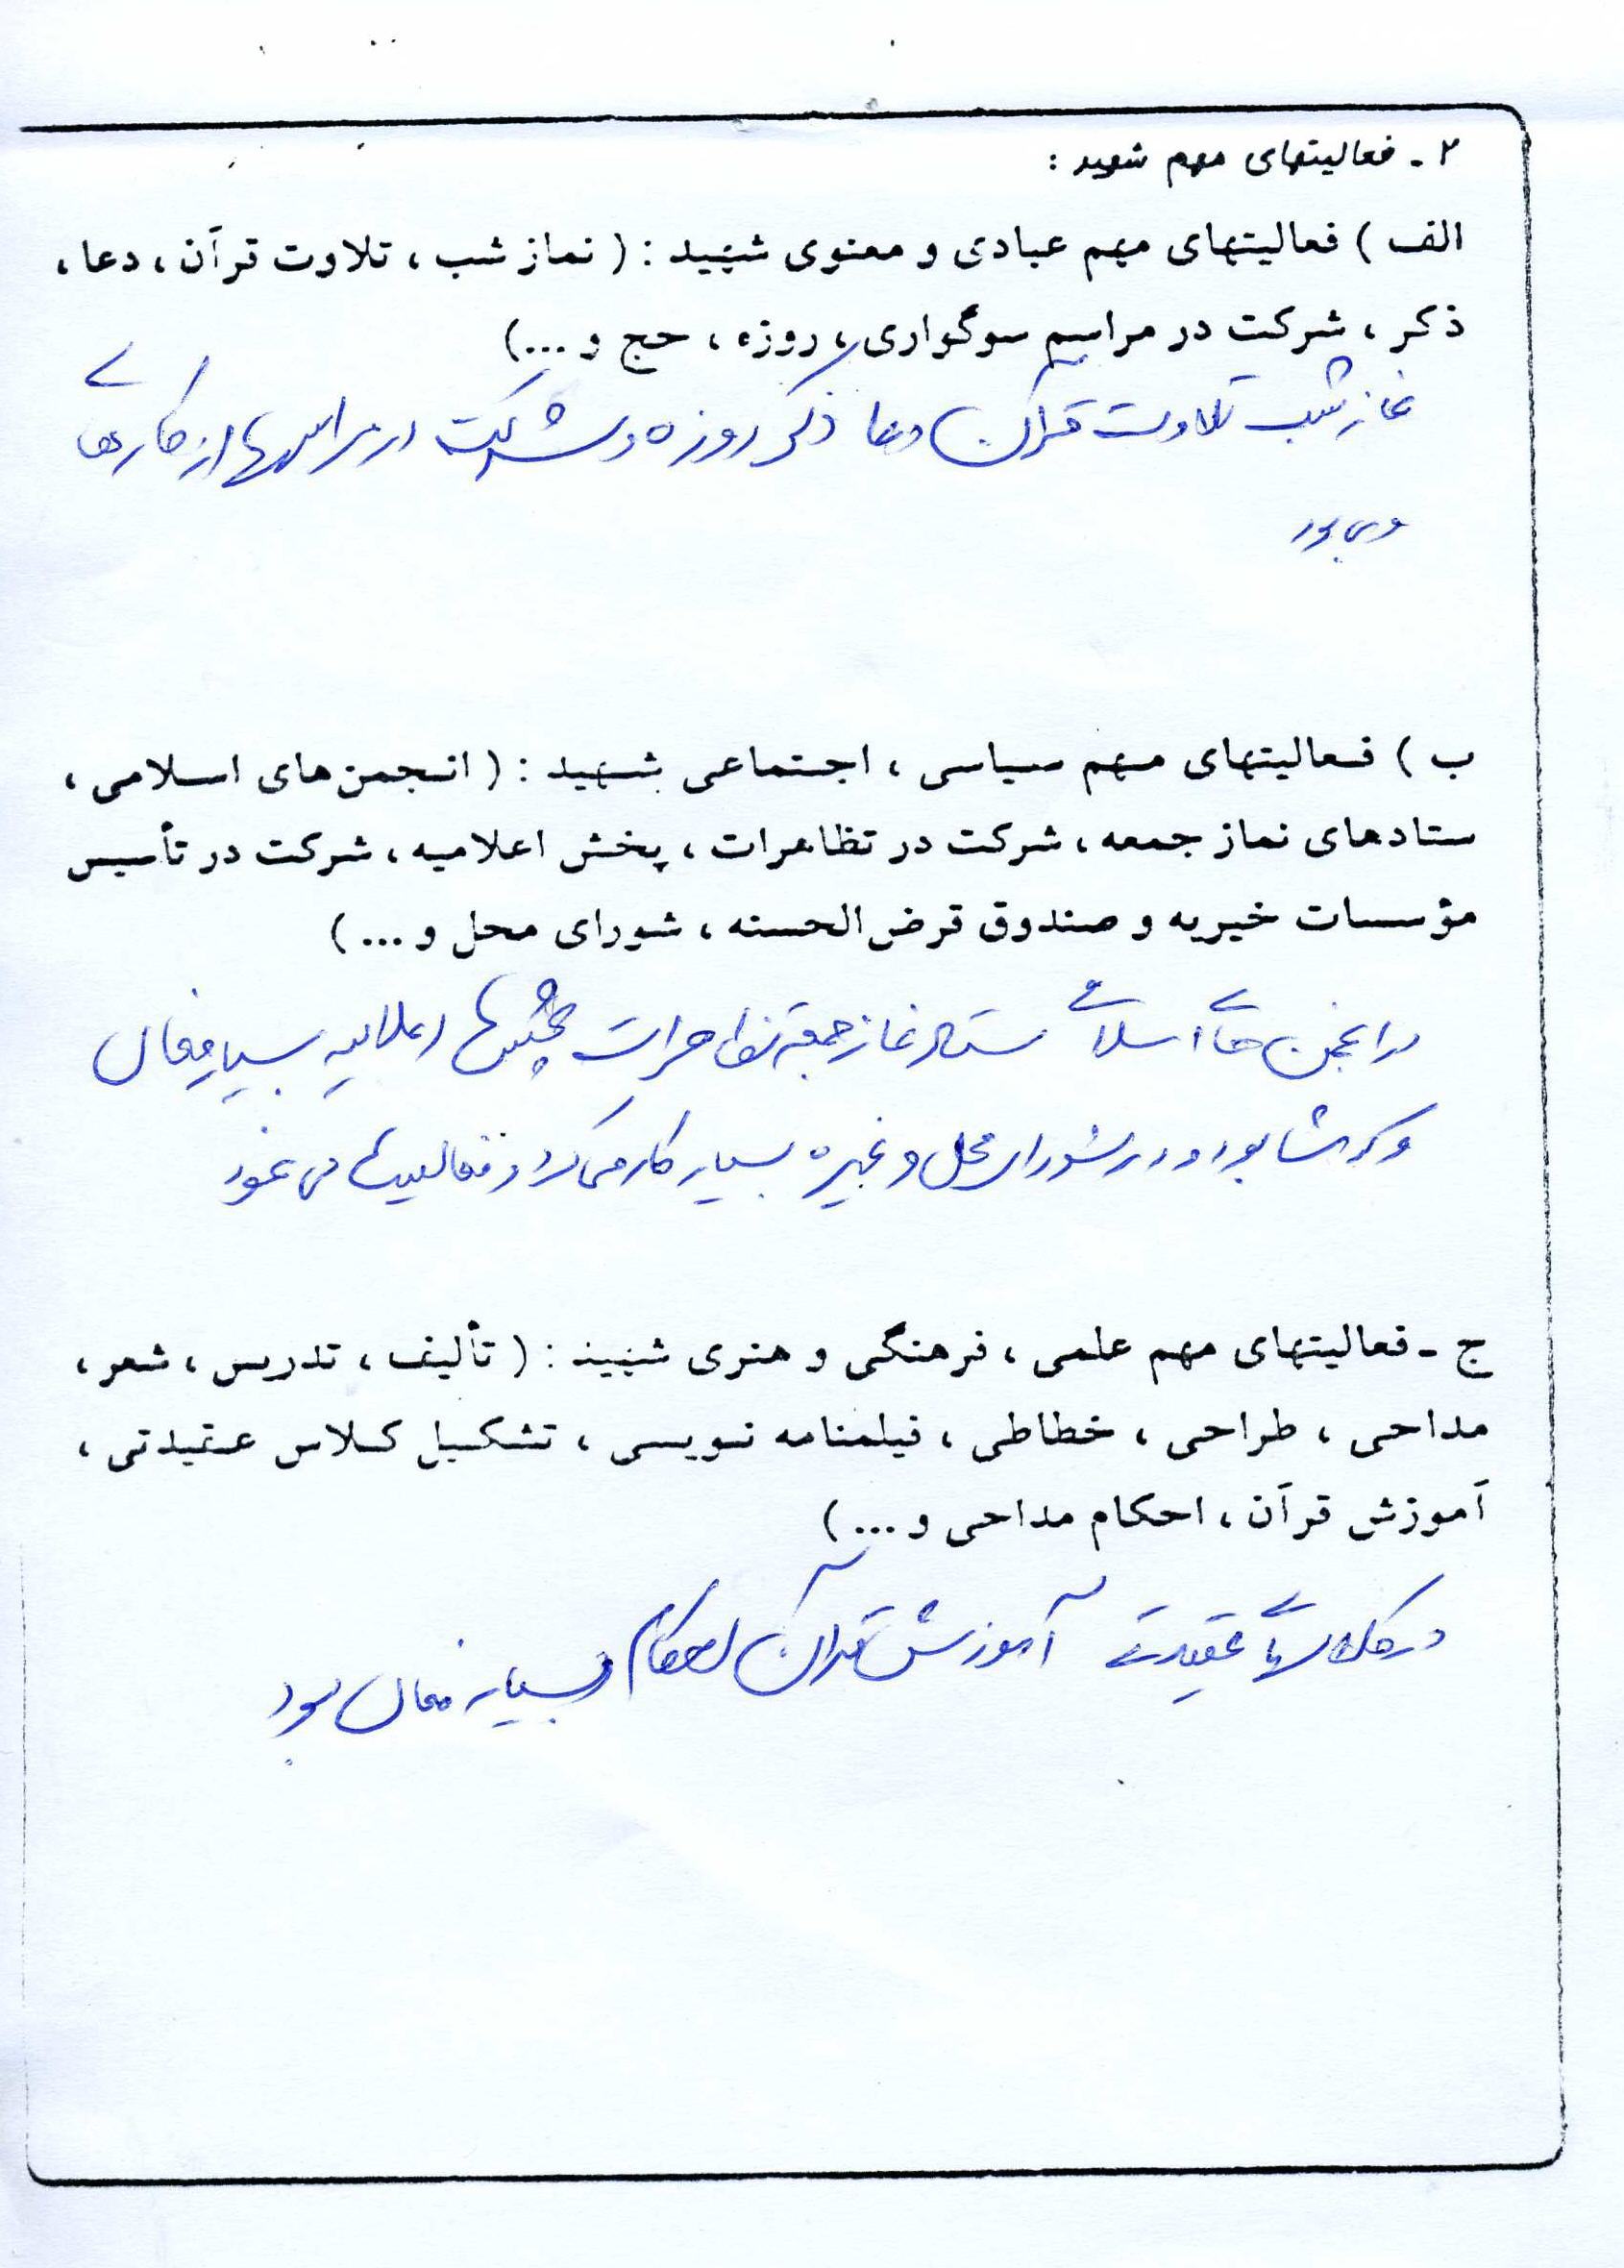 ۲ - فعالیتهای مهم شهید :
الف ) فعالیتهای مهم عبادی و معنوی شهید : ( نماز شب ، تلاوت قرآن ، دعا ،
ذکر ، شرکت در مراسم سوگواری ، روزه ، حج و ...)
نماز شب تلاوت قرآن دعا ذکر روزه و شرکت در مراسمها از کارهای
وی بود
ب ) فعالیتهای مهم سیاسی ، اجتماعی شهید : ( انجمن‌های اسلامی ،
ستادهای نماز جمعه ، شرکت در تظاهرات ، پخش اعلامیه ، شرکت در تأسیس
مؤسسات خیریه و صندوق قرض‌الحسنه ، شورای محل و ... )
در انجمن های اسلامی ستاد نماز جمعه تظاهرات پخش اعلامیه بسیار فعال
و کوشا بود و در شورای محل و غیره بسیار کار می کرد و فعالیتها می نمود
ج - فعالیتهای مهم علمی ، فرهنگی و هنری شهید : ( تألیف ، تدریس ، شعر ،
مداحی ، طراحی ، خطاطی ، فیلمنامه نویسی ، تشکیل کلاس عقیدتی ،
آموزش قرآن ، احکام مداحی و ... )
در کلاسهای عقیدتی آموزش قرآن احکام بسیار فعال بود